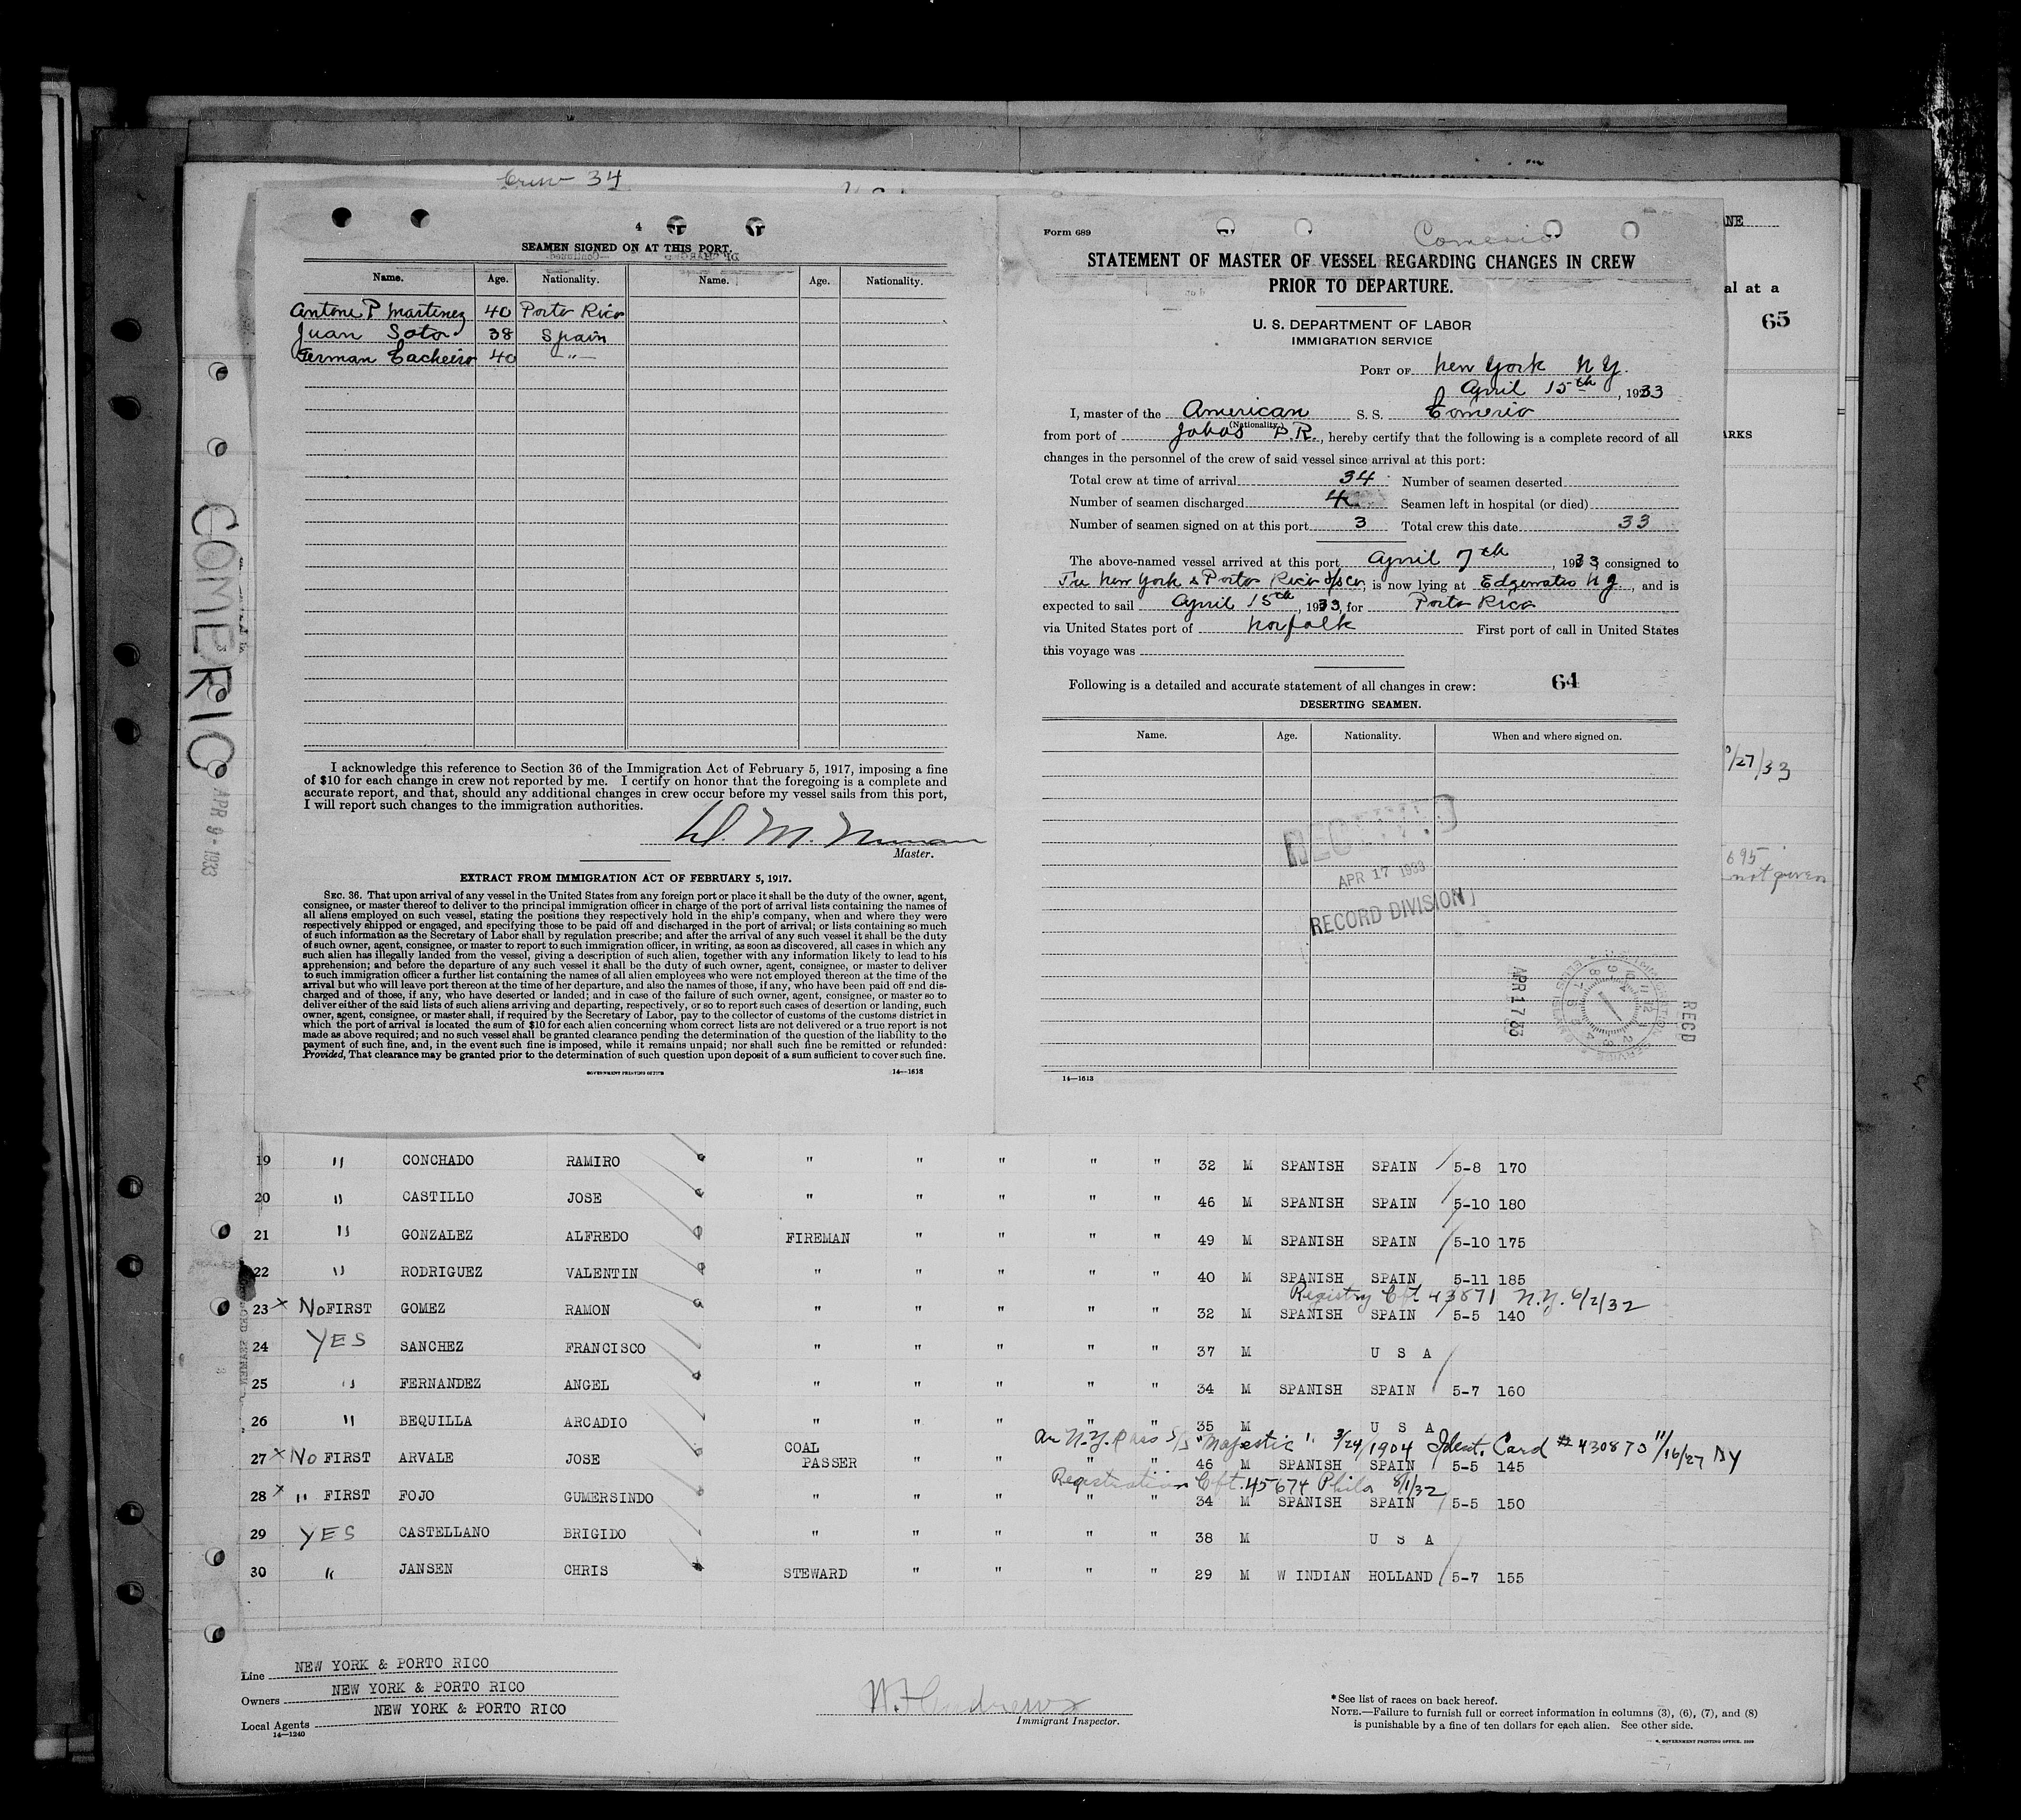 Crew 34
4
SEAMEN SIGNED ON AT THIS PORT.
Name. Age. Nationality. Name. Age. Nationality.
Antone P Martinez 40 Porto Rico
Juan Soto 38 Spain
German Cacheiro 40 "
I acknowledge this reference to Section 36 of the Immigration Act of February 5, 1917, imposing a fine
of $10 for each change in crew not reported by me. I certify on honor that the foregoing is a complete and
accurate report, and that, should any additional changes in crew occur before my vessel sails from this port,
I will report such changes to the immigration authorities.
Master.
EXTRACT FROM IMMIGRATION ACT OF FEBRUARY 5, 1917.
SEC. 36. That upon arrival of any vessel in the United States from any foreign port or place it shall be the duty of the owner, agent,
consignee, or master thereof to deliver to the principal immigration officer in charge of the port of arrival lists containing the names of
all aliens employed on such vessel, stating the positions they respectively hold in the ship's company, when and where they were
respectively shipped or engaged, and specifying those to be paid off and discharged in the port of arrival; or lists containing so much
of such information as the Secretary of Labor shall by regulation prescribe; and after the arrival of any such vessel it shall be the duty
of such owner, agent, consignee, or master to report to such immigration officer, in writing, as soon as discovered, all cases in which any
such alien has illegally landed from the vessel, giving a description of such alien, together with any information likely to lead to his
apprehension; and before the departure of any such vessel it shall be the duty of such owner, agent, consignee, or master to deliver
to such immigration officer a further list containing the names of all alien employees who were not employed thereon at the time of the
arrival but who will leave port thereon at the time of her departure, and also the names of those, if any, who have been paid off and dis-
charged and of those, if any, who have deserted or landed; and in case of the failure of such owner, agent, consignee, or master so to
deliver either of the said lists of such aliens arriving and departing, respectively, or so to report such cases of desertion or landing, such
owner, agent, consignee, or master shall, if required by the Secretary of Labor, pay to the collector of customs of the customs district in
which the port of arrival is located the sum of $10 for each alien concerning whom correct lists are not delivered or a true report is not
made as above required; and no such vessel shall be granted clearance pending the determination of the question of the liability to the
payment of such fine, and, in the event such fine is imposed, while it remains unpaid; nor shall such fine be remitted or refunded:
Provided, That clearance may be granted prior to the determination of such question upon deposit of a sum sufficient to cover such fine.
GOVERNMENT PRINTING OFFICE 14—1613
Form 689
Comerio
STATEMENT OF MASTER OF VESSEL REGARDING CHANGES IN CREW
PRIOR TO DEPARTURE.
U. S. DEPARTMENT OF LABOR
IMMIGRATION SERVICE
PORT OF New York N.Y.
April 15th, 1933
I, master of the American S. S. Comerio
(Nationality.)
from port of Jobos P.R., hereby certify that the following is a complete record of all
changes in the personnel of the crew of said vessel since arrival at this port:
Total crew at time of arrival 34 Number of seamen deserted
Number of seamen discharged 4 Seamen left in hospital (or died)
Number of seamen signed on at this port 3 Total crew this date 33
The above-named vessel arrived at this port April 7th, 1933, consigned to
The New York & Porto Rico S/S Co, is now lying at Edgewater N J, and is
expected to sail April 15th, 1933, for Porto Rico
via United States port of Norfolk First port of call in United States
this voyage was
Following is a detailed and accurate statement of all changes in crew: 64
DESERTING SEAMEN.
Name. Age. Nationality. When and where signed on.
RECEIVED
APR 17 1933
RECORD DIVISION
APR 17 33
RECD
14—1613
al at a
65
ARKS
/27/33
695
not given
COMERIO
APR 9 - 1933
19 " CONCHADO RAMIRO " " " " " 32 M SPANISH SPAIN 5-8 170
20 " CASTILLO JOSE " " " " " 46 M SPANISH SPAIN 5-10 180
21 " GONZALEZ ALFREDO FIREMAN " " " " 49 M SPANISH SPAIN 5-10 175
22 " RODRIGUEZ VALENTIN " " " " " 40 M SPANISH SPAIN 5-11 185
Registry Cft 43871 N.Y. 6/2/32
23 x No FIRST GOMEZ RAMON " " " " " 32 M SPANISH SPAIN 5-5 140
24 YES SANCHEZ FRANCISCO " " " " " 37 M U S A
25 " FERNANDEZ ANGEL " " " " " 34 M SPANISH SPAIN 5-7 160
26 " BEQUILLA ARCADIO " " " " " 35 M U S A
Arr N.Y. Pass S/S "Majestic" 3/24/1904 Ident. Card #430873 11/16/27 NY
27 x No FIRST ARVALE JOSE COAL PASSER " " " " 46 M SPANISH SPAIN 5-5 145
Registration Cft. 45674 Phila 8/1/32
28 x " FIRST FOJO GUMERSINDO " " " " " 34 M SPANISH SPAIN 5-5 150
29 YES CASTELLANO BRIGIDO " " " " " 38 M U S A
30 " JANSEN CHRIS STEWARD " " " " 29 M W INDIAN HOLLAND 5-7 155
Line NEW YORK & PORTO RICO
Owners NEW YORK & PORTO RICO
Local Agents NEW YORK & PORTO RICO
14—1240
Immigrant Inspector.
*See list of races on back hereof.
NOTE.—Failure to furnish full or correct information in columns (3), (6), (7), and (8)
is punishable by a fine of ten dollars for each alien. See other side.